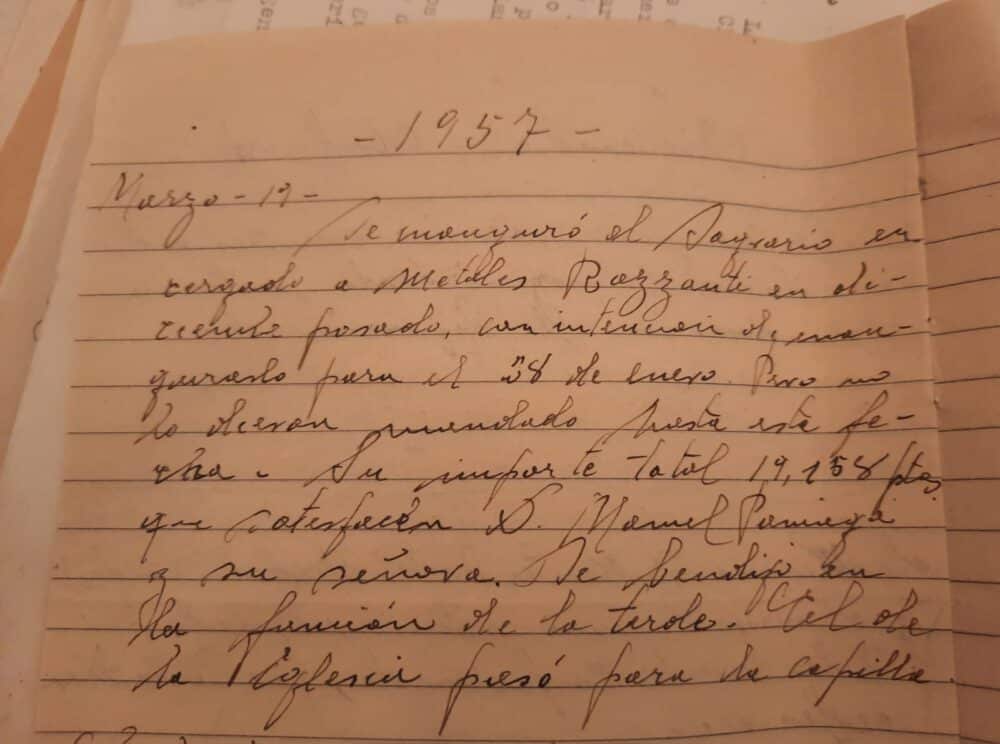 - 1957 -
Marzo - 19 -
Se inauguró el Sagrario en
cargado a Metales Razzanti en di-
ciembre pasado, con intención de inau-
gurarlo para el 28 de enero. Pero no
lo dieron mandado hasta esta fe-
cha. Su importe total 19,158 ptas
que satisfacen D. Manuel Paniagua
y su señora. Se bendijo en
la función de la tarde. El de
la Iglesia pasó para la capilla.